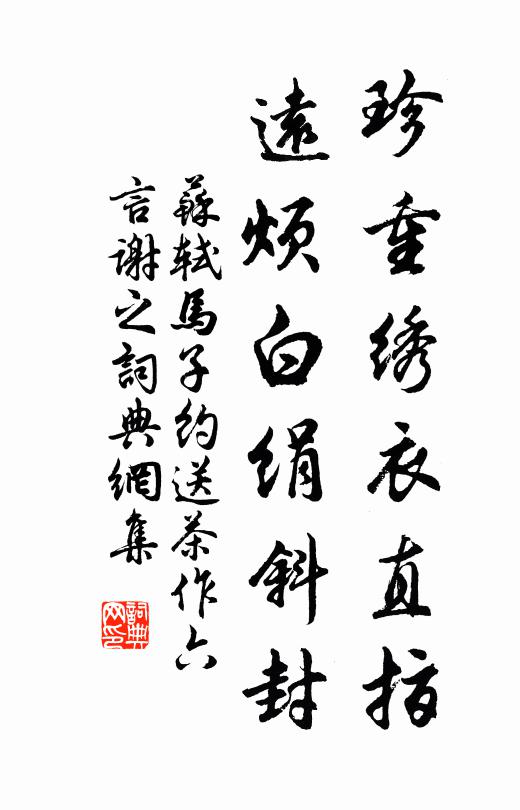 珍重绣衣直指
遠煩白絹斜封
蘇軾馬子約送茶作六
言謝之詞典網集
詞典
网印